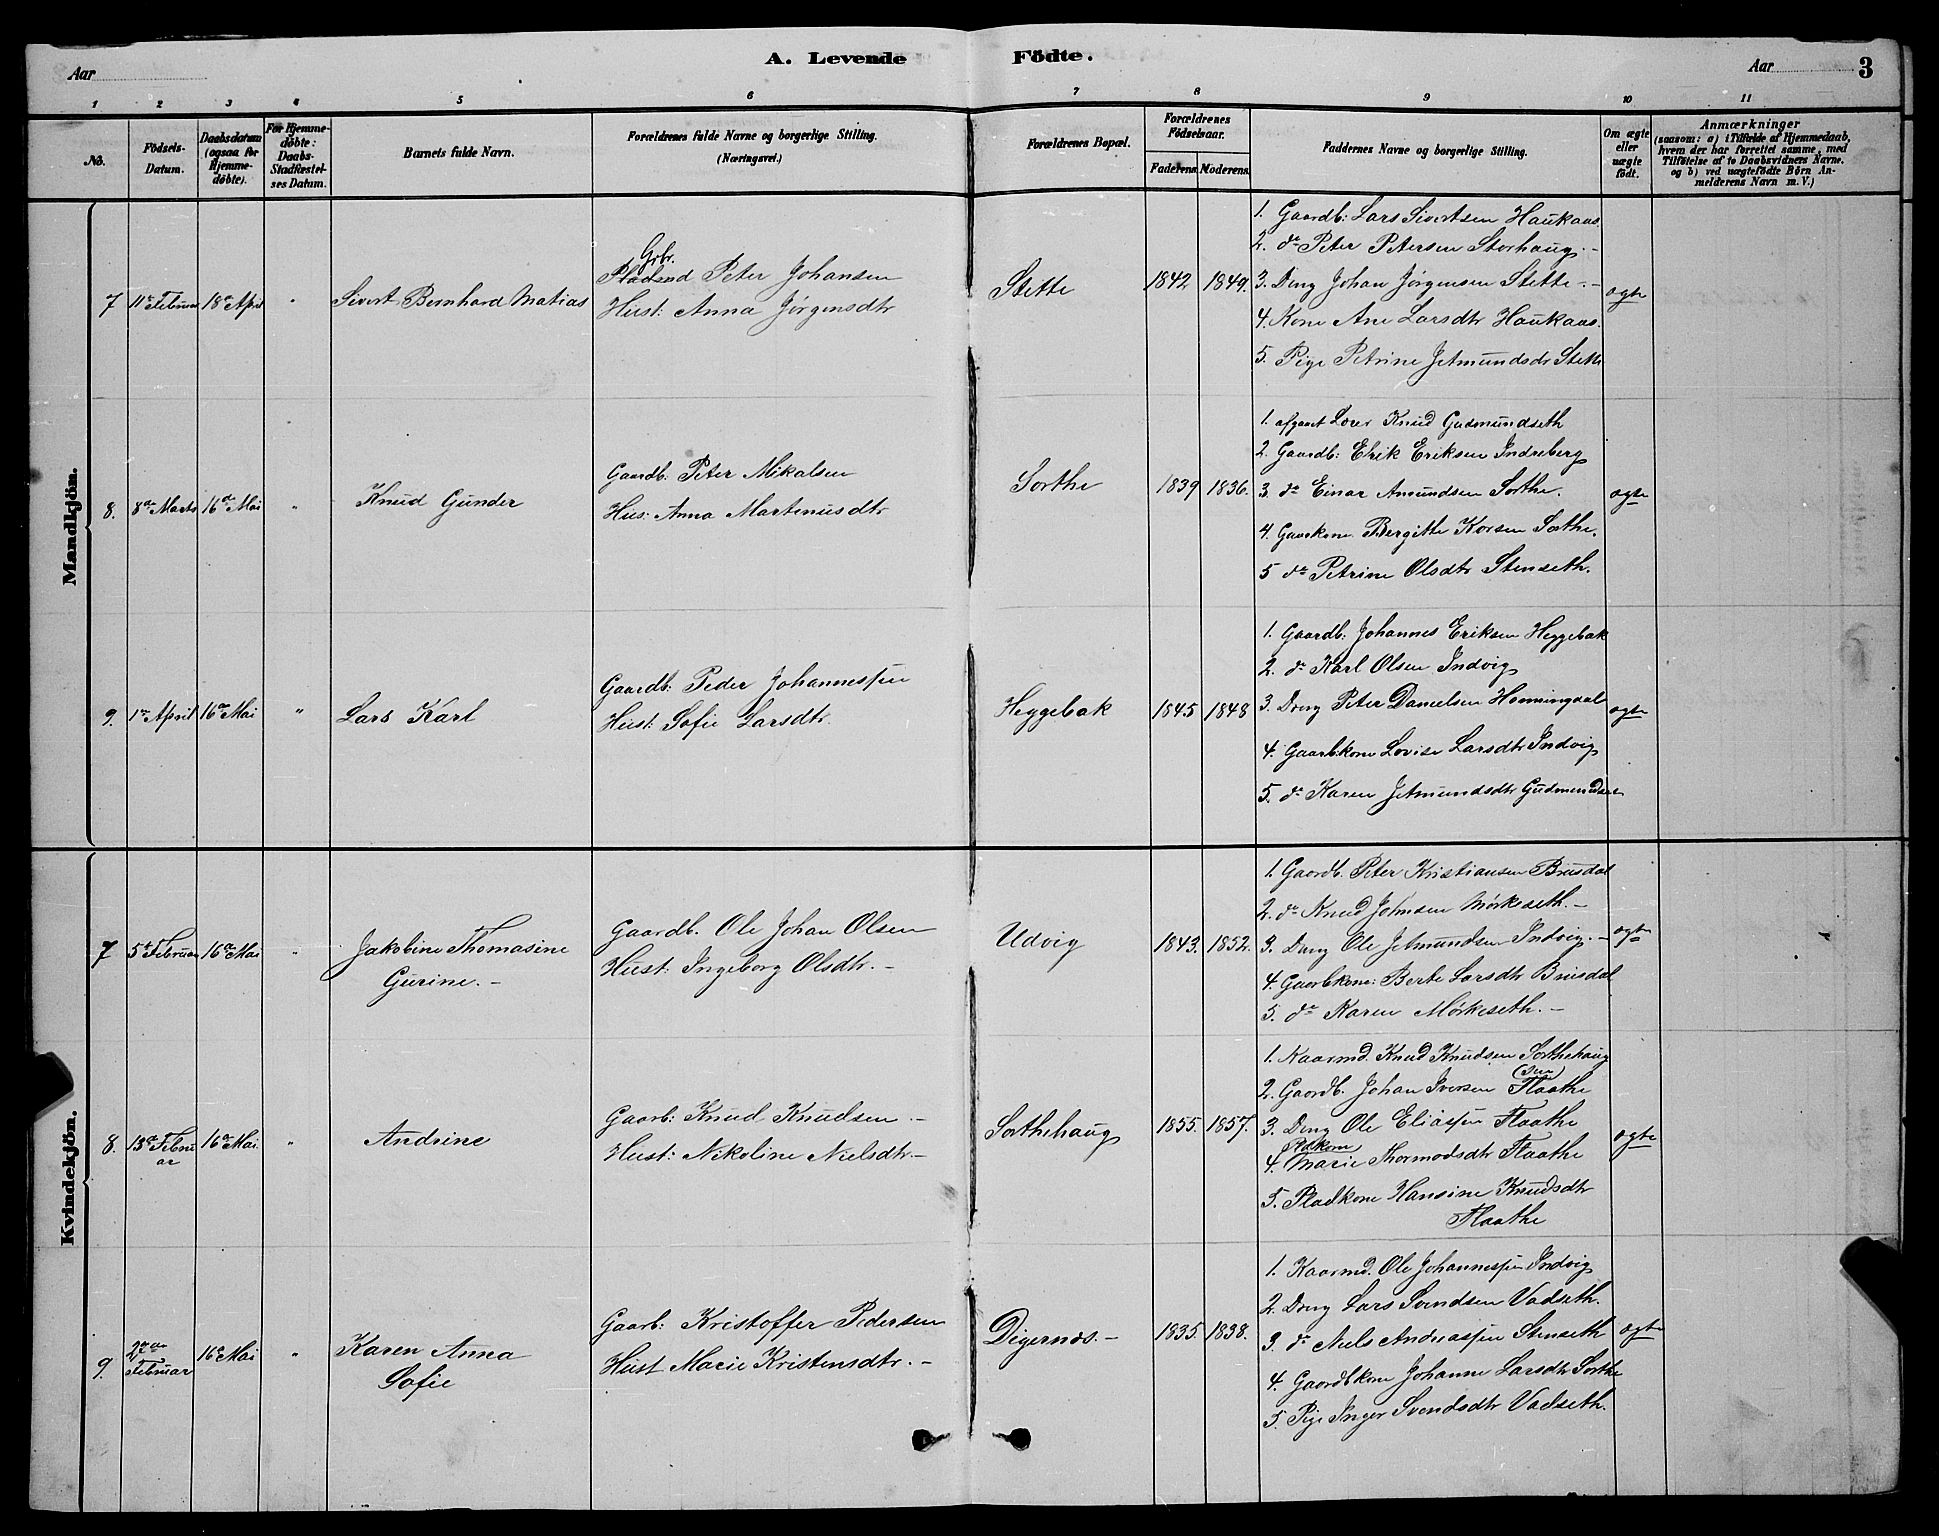 A. Levende Födte.
Aar
Aar
3
1 2 3 4 5 6 7 8 9 10 11
No.
Födsels-Datum.
Daabsdatum (ogsaa for Hjemme-döbte).
For Hjemme-döbte: Daabs-Stadfæstel-ses Datum.
Barnets fulde Navn.
Forældrenes fulde Navne og borgerlige Stilling.
(Næringsvei.)
Forældrenes Bopæl.
Forældrenes Födselsaar.
Faderens. Moderens.
Faddernes Navne og borgerlige Stilling.
Om ægte eller uægte födt.
Anmærkninger
(saasom: a) i Tilfælde af Hjemmedaab,
hvem der har forrettet samme, med
Tilföielse af to Daabsvidners Navne.
og b) ved uægtefödte Börn An-
melderens Navn m. V.)
Mandkjön.
7 11te Februar 18de April " Sivert Bernhard Matias
Gbr.
Pladsmd Peter Johansen
Hust: Anna Jørgensdtr
Stette 1842 1849.
1. Gaardb: Lars Sivertsen Haukaas.
2. do Peter Petersen Storhaug. -
3. Dreng Johan Jørgensen Stette. -
4. Kone Ane Larsdtr Haukaas.
5. Pige Petrine Jetmundsdr Stette
ægte
8. 8de Marts 16de Mai " Knud Gunder
Gaardb: Peter Mikalsen
Hus: Anna Martinusdtr
Sorthe 1839 1836.
1. afgaaet Lærer Knud Gudmundseth
2. Gaardb: Elrik Eriksen Indreberg
3. do Einar Amundsen Sorthe.
4. Bergitte Korsen Sorthe.
5 do Petrine Olsdtr Stenseth.
ægte
9. 1ste April 16de Mai " Lars Karl
Gaardb: Peder Johannessen
Hust: Sofie Larsdtr.
Heggebak 1845 1848
1. Gaardb: Johannes Eriksen Heggebak
2. do Karl Olsen Indvig
3. Dreng Peter Danielsen Honningdal
4. Gaardbkone Lovise Larsdtr Indvig
5. do Karen Jetmundsdtr Gudmundset
ægte
Kvindekjön.
7 5te Februar 16de Mai " Jakobine Thomasine
Gurine. -
Gaardb. Ole Johan Olsen
Hust: Ingeborg Olsdtr. -
Udvig 1843. 1852.
1. Gaardb. Peter Kristiansen Brusdal
2. do Knud Johnsen Mørkeseth. -
3. Dreng Ole Jetmundsen Indvig. -
4. Gaardbkone: Berte Larsdtr Brusdal
5. do Karen Mørkeseth. -
ægte
8. 13de Februar 16de Mai. " Andrine
Gaarb: Knud Knudsen -
Hust: Nikoline Nielsdtr -
Sorthehaug 1855. 1857.
1. Kaarmd. Knud Knudsen Sorthehaug
2. Gaardb. Johan Iversen (sen) Flaathe
3. Dreng Ole Eliassen Flaathe
Pladkone
4. Marie Thormodsdtr Flaathe
5. Pladkone Hansine Knudsdtr
Flaathe
ægte
9. 2den Februar 16de Mai " Karen Anna
Sofie
Gaarb: Kristoffer Pedersen
Hust Marie Kristensdtr. -
Digernæs. - 1835. 1838.
1. Kaarmd. Ole Johannessen Indvig
2. Dreng Lars Svendsen Vadseth.
3. do Niels Andreassen Stenseth
4. Gaardbkone Johanne Larsdtr Sorthe
5. Pige Inger Svendsdtr Vadseth.
ægte